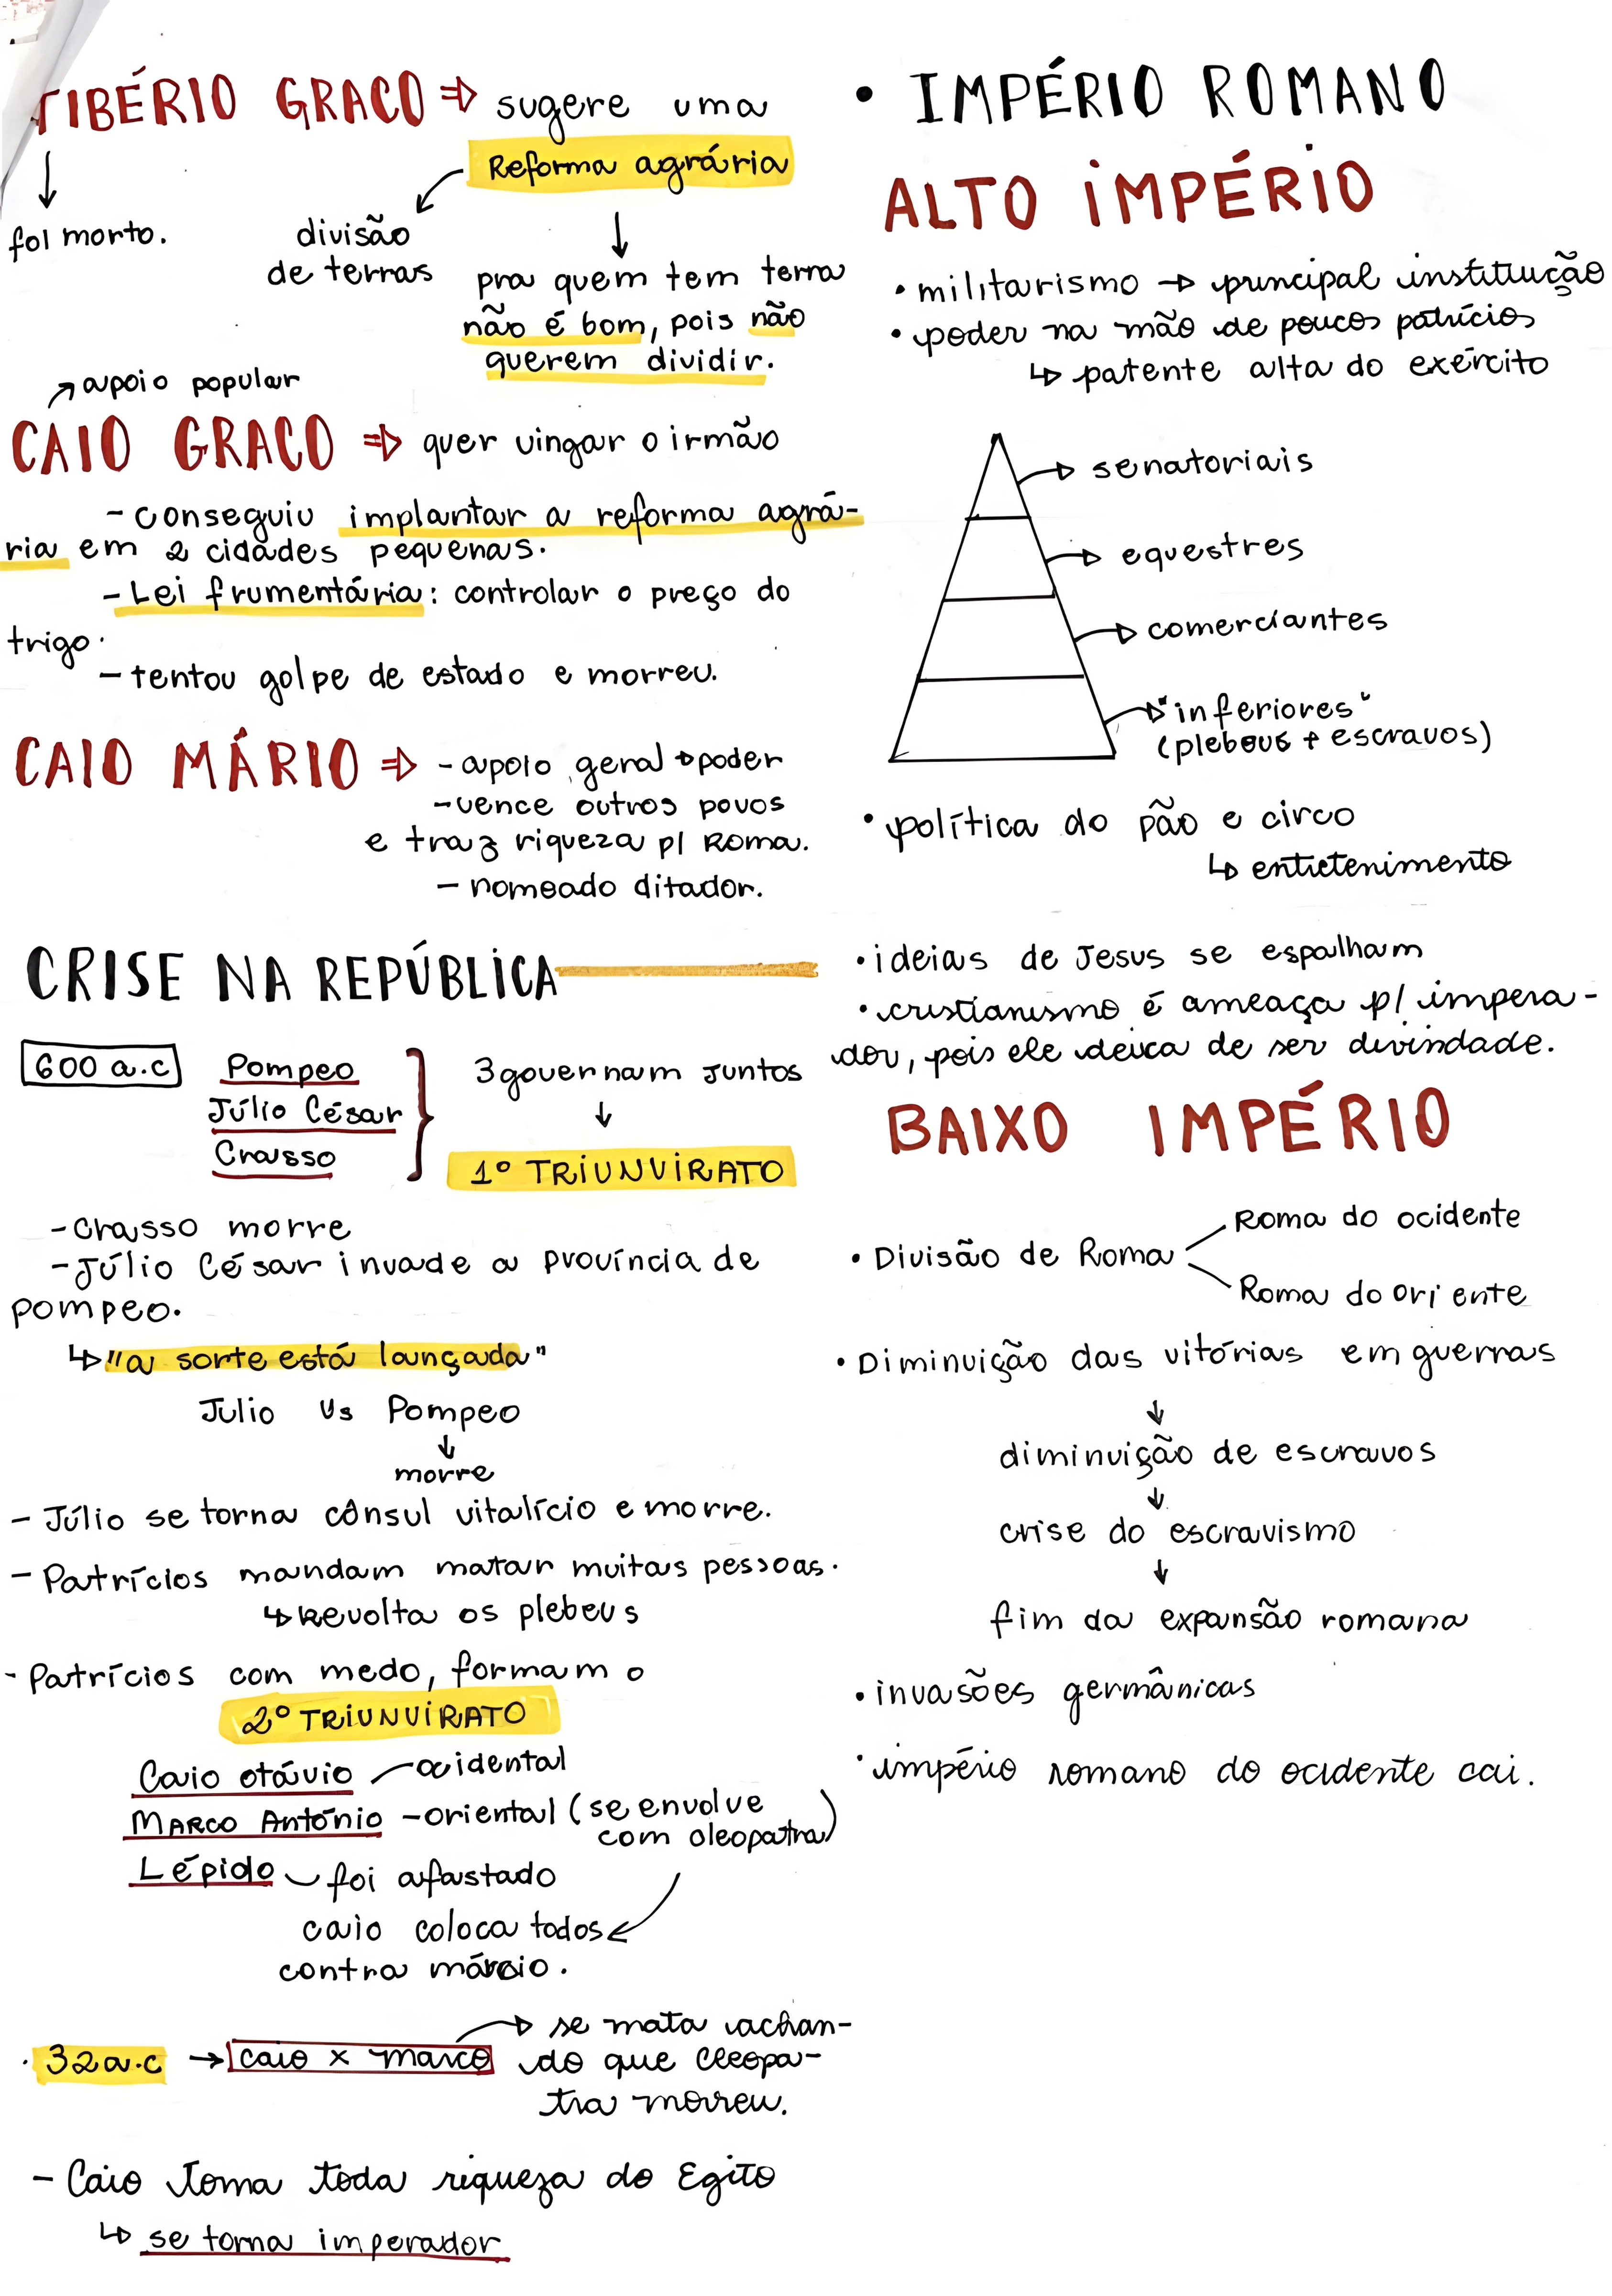 TIBÉRIO GRACO ⇒ sugere uma
Reforma agrária
foi morto.
divisão
de terras
pra quem tem terra
não é bom, pois não
querem dividir.
apoio popular
CAIO GRACO ⇒ quer vingar o irmão
- conseguiu implantar a reforma agrá-
ria em 2 cidades pequenas.
- Lei frumentária: controlar o preço do
trigo.
- tentou golpe de estado e morreu.
CAIO MÁRIO ⇒ - apoio geral → poder
- vence outros povos
e traz riqueza p/ Roma.
- nomeado ditador.
CRISE NA REPÚBLICA
600 a.c
Pompeo
Júlio César
Crasso
3 governam juntos
↓
1º TRIUNVIRATO
- Crasso morre
- Júlio César invade a província de
pompeo.
↳ "a sorte está lançada"
Julio vs Pompeo
↓
morre
- Júlio se torna cônsul vitalício e morre.
- Patrícios mandam matar muitas pessoas.
↳ Revolta os plebeus
- Patrícios com medo, formam o
2º TRIUNVIRATO
Caio otávio - ocidental
Marco Antônio - oriental (se envolve
com cleopatra)
Lépido - foi afastado
caio coloca todos
contra márcio.
· 32 a.c → caio x marco
se mata achan-
do que Cleopa-
tra morreu.
- Caio toma toda riqueza do Egito
↳ se torna imperador
• IMPÉRIO ROMANO
ALTO IMPÉRIO
• militarismo → principal instituição
• poder na mão de poucos patrícios
↳ patente alta do exército
senatoriais
equestres
comerciantes
"inferiores"
(plebeus + escravos)
• política do pão e circo
↳ entretenimento
• ideias de Jesus se espalham
• cristianismo é ameaça p/ impera-
dor, pois ele deixa de ser divindade.
BAIXO IMPÉRIO
• Divisão de Roma
Roma do ocidente
Roma do oriente
• Diminuição das vitórias em guerras
↓
diminuição de escravos
↓
crise do escravismo
↓
fim da expansão romana
• invasões germânicas
• império romano do ocidente cai.